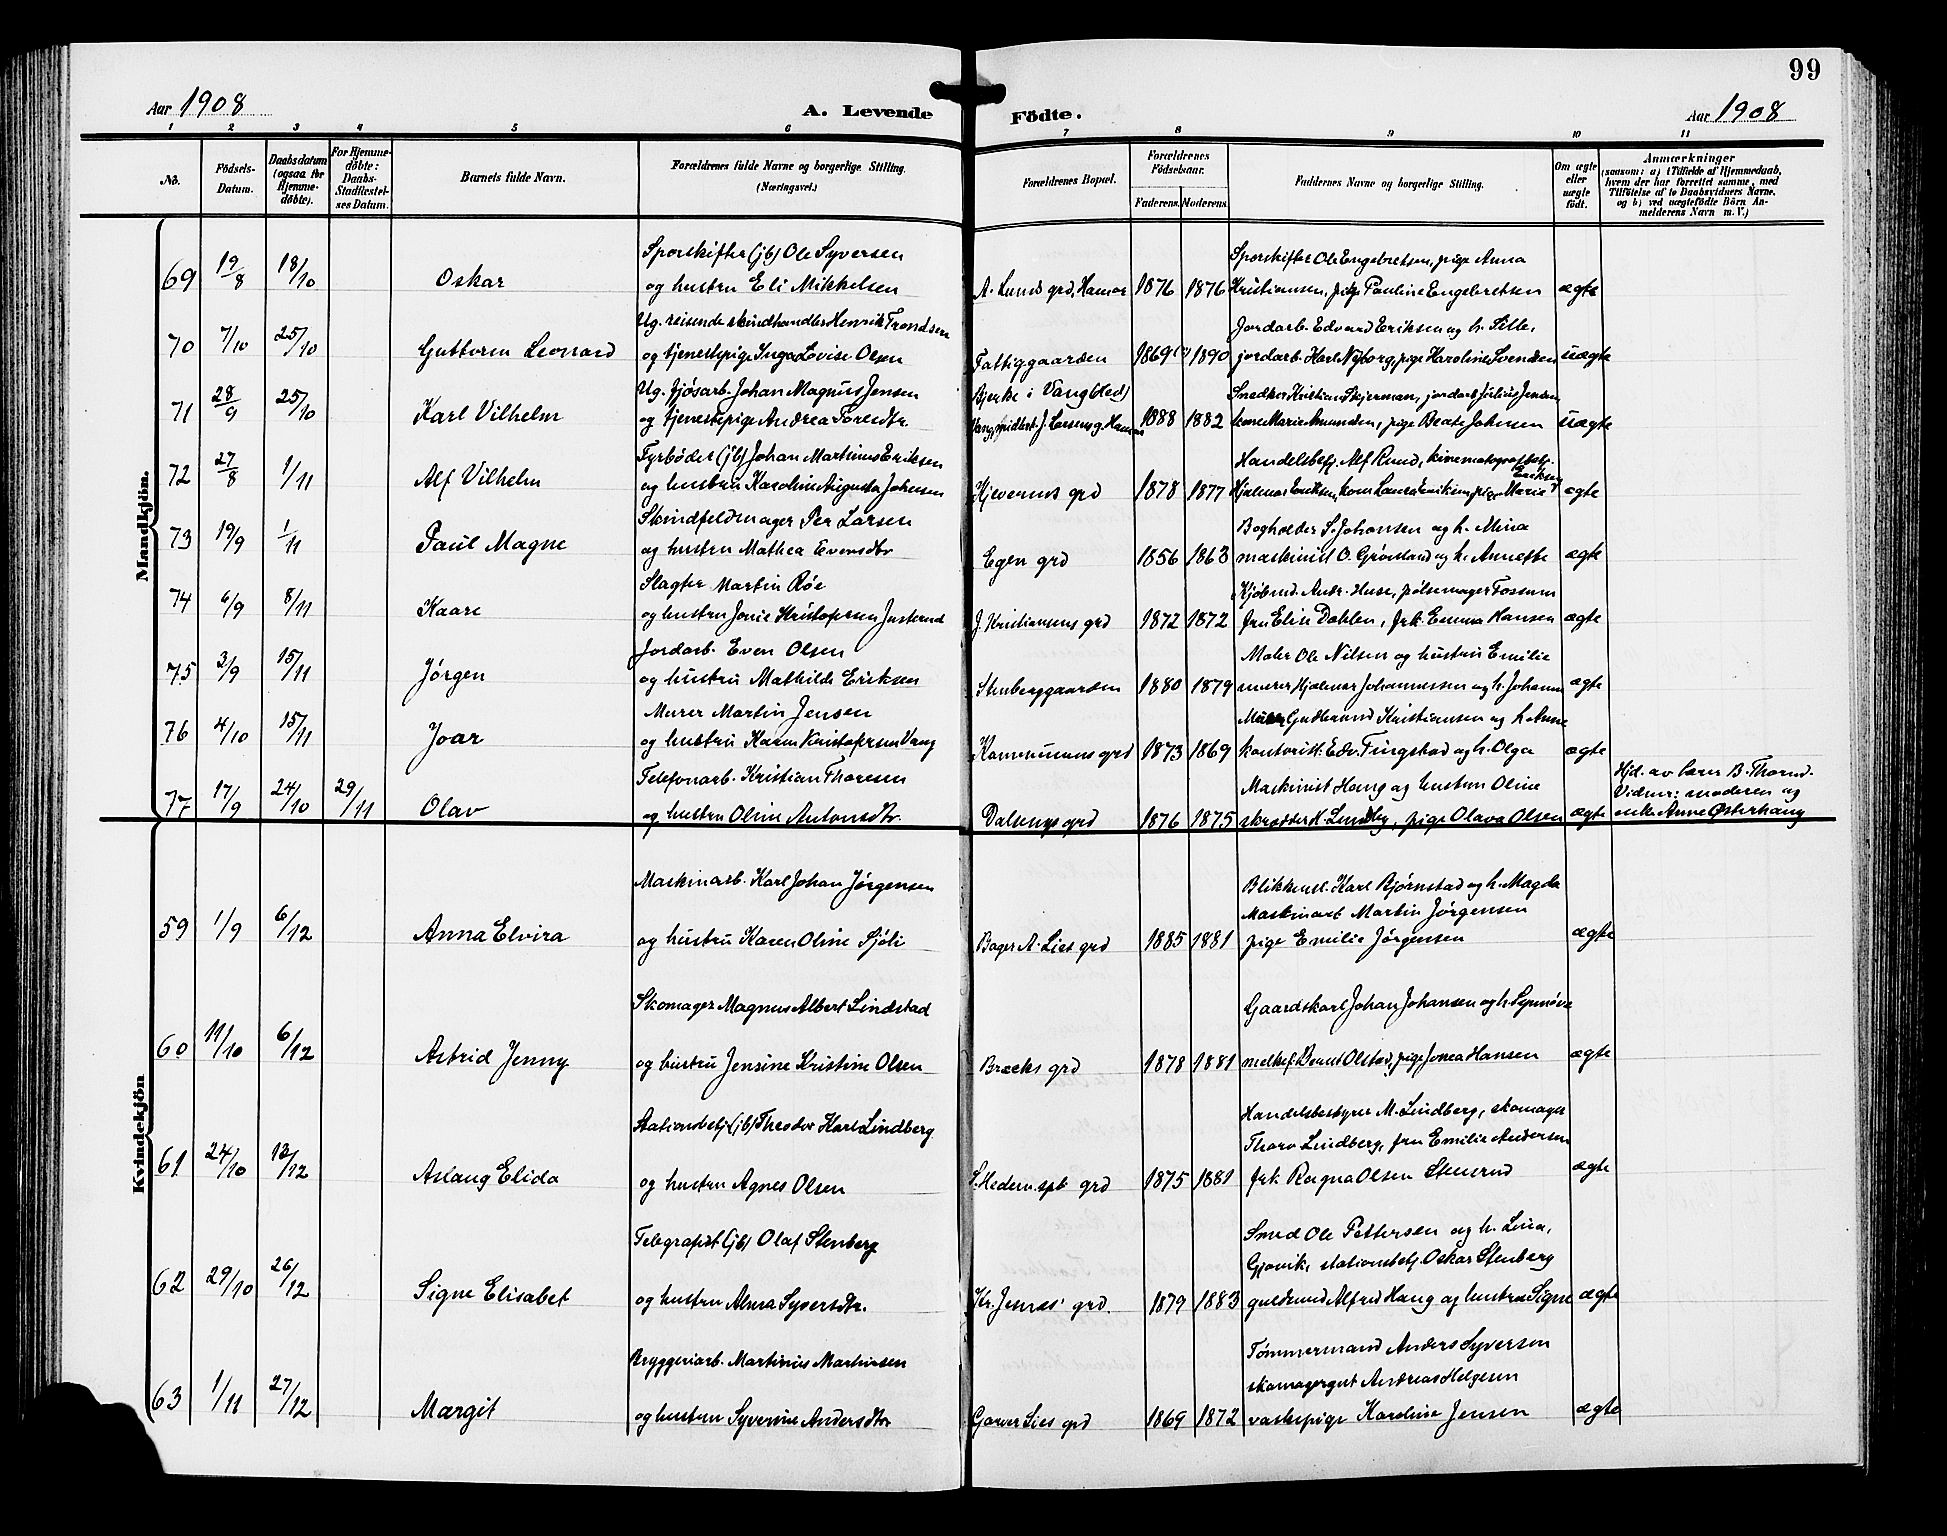 99
Aar 1908
A. Levende Födte.
Aar 1908
1 2 3 4 5 6 7 8 9 10 11
No.
Födsels-Datum.
Daabsdatum (ogsaa for Hjemme-döbte).
For Hjemme-döbte: Daabs-Stadfæstel-ses Datum.
Barnets fulde Navn.
Forældrenes fulde Navne og borgerlige Stilling. (Næringsvei.)
Forældrenes Bopæl.
Forældrenes Födselsaar.
Faderens. Moderens.
Faddernes Navne og borgerlige Stilling.
Om ægte eller uægte födt.
Anmærkninger
(saasom: a) i Tilfælde af Hjemmedaab, hvem der har forrettet samme, med Tilföielse af to Daabsvidners Navne, og b) ved uægtefödte Börn An-melderens Navn m. V.)
Mandkjön.
Sporskifter (jb) Ole Syversen
Sporskifter Ole Engebretsen, pige Anna
69 19/8 18/10 Oskar og hustru Eli Mikkelsen A. Lunds grd, Hamar 1876 1876 Kristiansen, pige Pauline Engebretsen ægte
Ug. reisende skindhandler Henrik Trondsen
Jordarb. Edvard Eriksen og h. Sille,
70 7/10 25/10 Guttorm Leonard og tjenestepige Inga Lovise Olsen Fattiggaarden 1869(?) 1890 jordarb. Karl Nyborg, pige Karoline Svendsen uægte
Ug. fjøsarb. Johan Magnus Jensen
Bjerke i Vang (sted)
Snedker Kristian Skjerman, jordarb Julius Jensen
71 28/9 25/10 Karl Vilhelm og tjenestepige Andrea Toresdtr. 1888 1882 kone Marie Amundsen, pige Beate Johnsen uægte
Fyrbøder (jb) Johan Martinius Eriksen
Handelsbetj. Alf Ruud, kinematografbetj.
72 27/8 1/11 Alf Vilhelm og hustru Karoline Augusta Johnsen Kjevernes grd 1878 1877 Hjalmar Eriksen, kone Laura Eriksen, pige Marie Eriksen ægte
Skindfeldmager Per Larsen
Bogholder S. Johansen og h. Mina
73 19/9 1/11 Paul Magne og hustru Mathea Evensdtr Egen grd 1856 1863 maskinist O. Grönland og h. Annette ægte
Slagter Martin Røe
Kjöbmd. Andr. Huse, pølsemager Fossum
74 6/9 8/11 Kaare og hustru Jonie Kristofersen Justerud J. Kristiansens grd 1872 1872 fru Elise Dahlen, frk. Emma Hansen ægte
Jordarb. Even Olsen
Maler Ole Nilsen og hustru Emilie
75 3/9 15/11 Jørgen og hustru Mathilde Eriksen Stenberggaarden 1880 1879 murer Hjalmar Johannessen og h. Johanne ægte
Murer Martin Jensen
Murer Gudbrand Kristiansen og h. Anne
76 4/10 15/11 Joar og hustru Karen Kristofersen Vang Kommunens grd 1873 1869 kontorist Edv. Tingstad og h. Olga ægte
Telefonarb. Kristian Thoresen
Maskinist Haug og hustru Oline
Hjd. av lærer B. Thorud.
Vidner: moderen og
77 17/9 24/10 29/11 Olav og hustru Oline Antonsdtr. Dalsengs grd 1876 1875 skrædder K. Lundby, pige Olava Olsen ægte enke Anne Østerhaug
Kvindekjön
Maskinarb. Karl Johan Jørgensen
Blikkensl. Karl Bjørnstad og h. Magda
Maskinarb Martin Jørgensen
59 1/9 6/12 Anna Elvira og hustru Karen Oline Sjöli Bager A. Lies grd 1885 1881 pige Emilie Jørgensen ægte
Skomager Magnus Albert Lindstad
Gaardskarl Johan Johansen og h. Synnöve
60 11/10 6/12 Astrid Jenny og hustru Jensine Kristine Olsen Bræcks grd 1878 1881 melkef. Bernt Olstad, pige Jonea Hansen ægte
Stationsbetj (jb) Theodor Karl Lindberg
Handelsbestyrer M. Lindberg, skomager
Thorv. Lindberg, fru Emilie Andersen
61 24/10 13/12 Aslaug Elida og hustru Agnes Olsen S. Hedem. spb grd 1875 1881 frk. Ragna Olsen Stenerud ægte
Telegrafist (jb) Olaf Stenberg
Smed Ole Pettersen og h. Lina,
Gjøvik, stationsbetj. Oskar Stenberg
62 29/10 26/12 Signe Elisabet og hustru Alma Syversdtr. Kr. Jensens grd. 1879 1883 guldsmed Alfred Haug og hustru Signe ægte
Bryggeriarb. Martinius Martinsen
Tömmermand Anders Syversen
skomagergut Andreas Helgesen
63 1/11 27/12 Margit og hustru Syverine Andersdtr Garver Lies grd 1869 1872 vaskepige Karoline Jensen ægte